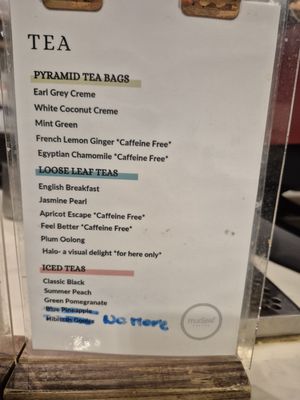 TEA
PYRAMID TEA BAGS
Earl Grey Creme
White Coconut Creme
Mint Green
French Lemon Ginger *Caffeine Free*
Egyptian Chamomile *Caffeine Free*
LOOSE LEAF TEAS
English Breakfast
Jasmine Pearl
Apricot Escape *Caffeine Free*
Feel Better *Caffeine Free*
Plum Oolong
Halo- a visual delight *for here only*
ICED TEAS
Classic Black
Summer Peach
Green Pomegranate
Blue Pineapple
Hibiscus No More